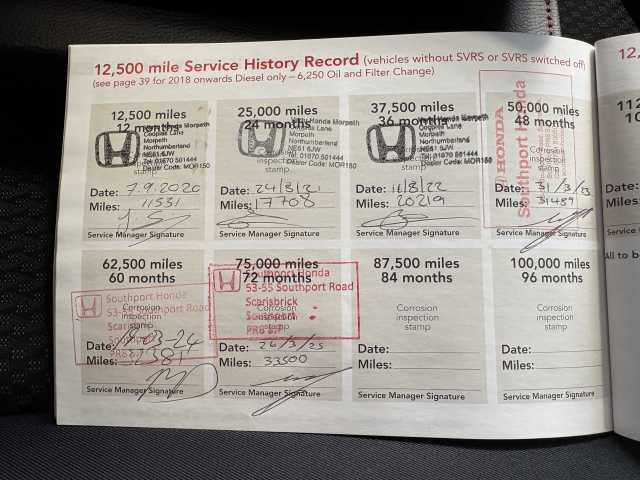 12,500 mile Service History Record (vehicles without SVRS or SVRS switched off)
(see page 39 for 2018 onwards Diesel only – 6,250 Oil and Filter Change)
12,500 miles
12 months
Honda Morpeth
Coopies Lane
Morpeth
Northumberland
NE61 6JW
Tel: 01670 501444
Dealer Code: MOR150
stamp
Date: 7.9.2020
Miles: 11551
Service Manager Signature
25,000 miles
24 months
Honda Morpeth
Coopies Lane
Morpeth
Northumberland
NE61 6JW
Tel: 01670 501444
Dealer Code: MOR150
inspection
stamp
Date: 24/8/21
Miles: 17708
Service Manager Signature
37,500 miles
36 months
Honda Morpeth
Coopies Lane
Morpeth
Northumberland
NE61 6JW
Tel: 01670 501444
Dealer Code: MOR150
stamp
Date: 16/8/22
Miles: 20219
Service Manager Signature
50,000 miles
48 months
HONDA
Southport Honda
Corrosion
inspection
stamp
Date: 31/3/23
Miles: 31489
Service Manager Signature
62,500 miles
60 months
Southport Honda
53-55 Southport Road
Corrosion
inspection
stamp
Date:
Miles:
Service Manager Signature
75,000 miles
72 months
Southport Honda
53-55 Southport Road
Scarisbrick
Southport
stamp
Date: 26/3/25
Miles: 33500
Service Manager Signature
87,500 miles
84 months
Corrosion
inspection
stamp
Date:
Miles:
Service Manager Signature
100,000 miles
96 months
Corrosion
inspection
stamp
Date:
Miles:
Service Manager Signature
112
10
Date:
Miles:
Service
All to b